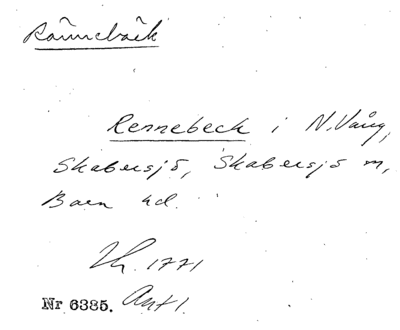 Rännebäck
Rennebeck i N. Vång,
Skabersjö, Skabersjö m,
Bara hd.
Lk. 1771
Nr 6385. Akt 1.